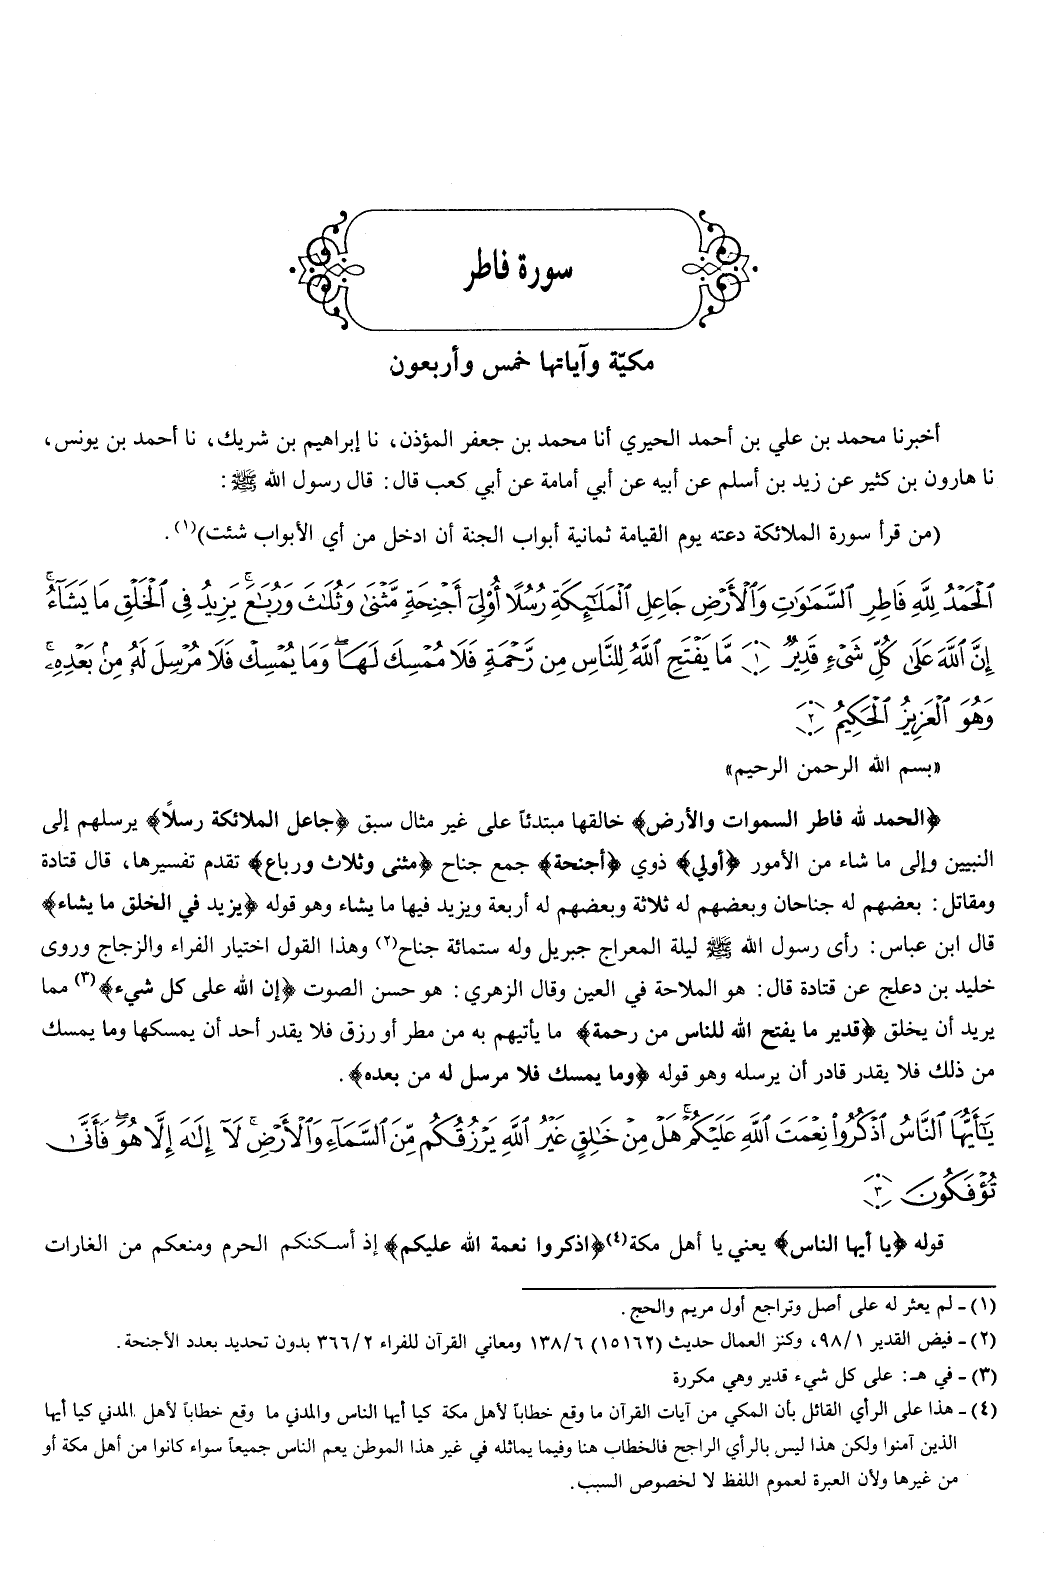 سورة فاطر
مكيّة وآياتها خمس وأربعون
أخبرنا محمد بن علي بن أحمد الحيري أنا محمد بن جعفر المؤذن، نا إبراهيم بن شريك، نا أحمد بن يونس،
نا هارون بن كثير عن زيد بن أسلم عن أبيه عن أبي أمامة عن أبي كعب قال: قال رسول الله ﷺ:
(من قرأ سورة الملائكة دعته يوم القيامة ثمانية أبواب الجنة أن ادخل من أي الأبواب شئت)(١).
ٱلْحَمْدُ لِلَّهِ فَاطِرِ ٱلسَّمَٰوَٰتِ وَٱلْأَرْضِ جَاعِلِ ٱلْمَلَٰٓئِكَةِ رُسُلًا أُو۟لِىٓ أَجْنِحَةٍ مَّثْنَىٰ وَثُلَٰثَ وَرُبَٰعَ ۚ يَزِيدُ فِى ٱلْخَلْقِ مَا يَشَآءُ ۚ
إِنَّ ٱللَّهَ عَلَىٰ كُلِّ شَىْءٍ قَدِيرٌ ١ مَّا يَفْتَحِ ٱللَّهُ لِلنَّاسِ مِن رَّحْمَةٍ فَلَا مُمْسِكَ لَهَا ۖ وَمَا يُمْسِكْ فَلَا مُرْسِلَ لَهُۥ مِنۢ بَعْدِهِۦ ۚ
وَهُوَ ٱلْعَزِيزُ ٱلْحَكِيمُ ٢
«بسم الله الرحمن الرحيم»
﴿الحمد لله فاطر السموات والأرض﴾ خالقها مبتدئاً على غير مثال سبق ﴿جاعل الملائكة رسلاً﴾ يرسلهم إلى
النبيين وإلى ما شاء من الأمور ﴿أولي﴾ ذوي ﴿أجنحة﴾ جمع جناح ﴿مثنى وثلاث ورباع﴾ تقدم تفسيرها، قال قتادة
ومقاتل: بعضهم له جناحان وبعضهم له ثلاثة وبعضهم له أربعة ويزيد فيها ما يشاء وهو قوله ﴿يزيد في الخلق ما يشاء﴾
قال ابن عباس: رأى رسول الله ﷺ ليلة المعراج جبريل وله ستمائة جناح(٢) وهذا القول اختيار الفراء والزجاج وروى
خليد بن دعلج عن قتادة قال: هو الملاحة في العين وقال الزهري: هو حسن الصوت ﴿إن الله على كل شيء﴾(٣) مما
يريد أن يخلق ﴿قدير ما يفتح الله للناس من رحمة﴾ ما يأتيهم به من مطر أو رزق فلا يقدر أحد أن يمسكها وما يمسك
من ذلك فلا يقدر قادر أن يرسله وهو قوله ﴿وما يمسك فلا مرسل له من بعده﴾.
يَٰٓأَيُّهَا ٱلنَّاسُ ٱذْكُرُوا۟ نِعْمَتَ ٱللَّهِ عَلَيْكُمْ ۚ هَلْ مِنْ خَٰلِقٍ غَيْرُ ٱللَّهِ يَرْزُقُكُم مِّنَ ٱلسَّمَآءِ وَٱلْأَرْضِ ۚ لَآ إِلَٰهَ إِلَّا هُوَ ۖ فَأَنَّىٰ
تُؤْفَكُونَ ٣
قوله ﴿يا أيها الناس﴾ يعني يا أهل مكة(٤) ﴿اذكروا نعمة الله عليكم﴾ إذ أسكنكم الحرم ومنعكم من الغارات
(١) - لم يعثر له على أصل وتراجع أول مريم والحج.
(٢) - فيض القدير ٩٨/١، وكنز العمال حديث (١٥١٦٢) ١٣٨/٦ ومعاني القرآن للفراء ٣٦٦/٢ بدون تحديد بعدد الأجنحة.
(٣) - في هـ: على كل شيء قدير وهي مكررة
(٤) - هذا على الرأي القائل بأن المكي من آيات القرآن ما وقع خطاباً لأهل مكة كيا أيها الناس والمدني ما وقع خطاباً لأهل المدني كيا أيها
الذين آمنوا ولكن هذا ليس بالرأي الراجح فالخطاب هنا وفيما يماثله في غير هذا الموطن يعم الناس جميعاً سواء كانوا من أهل مكة أو
من غيرها ولأن العبرة لعموم اللفظ لا لخصوص السبب.